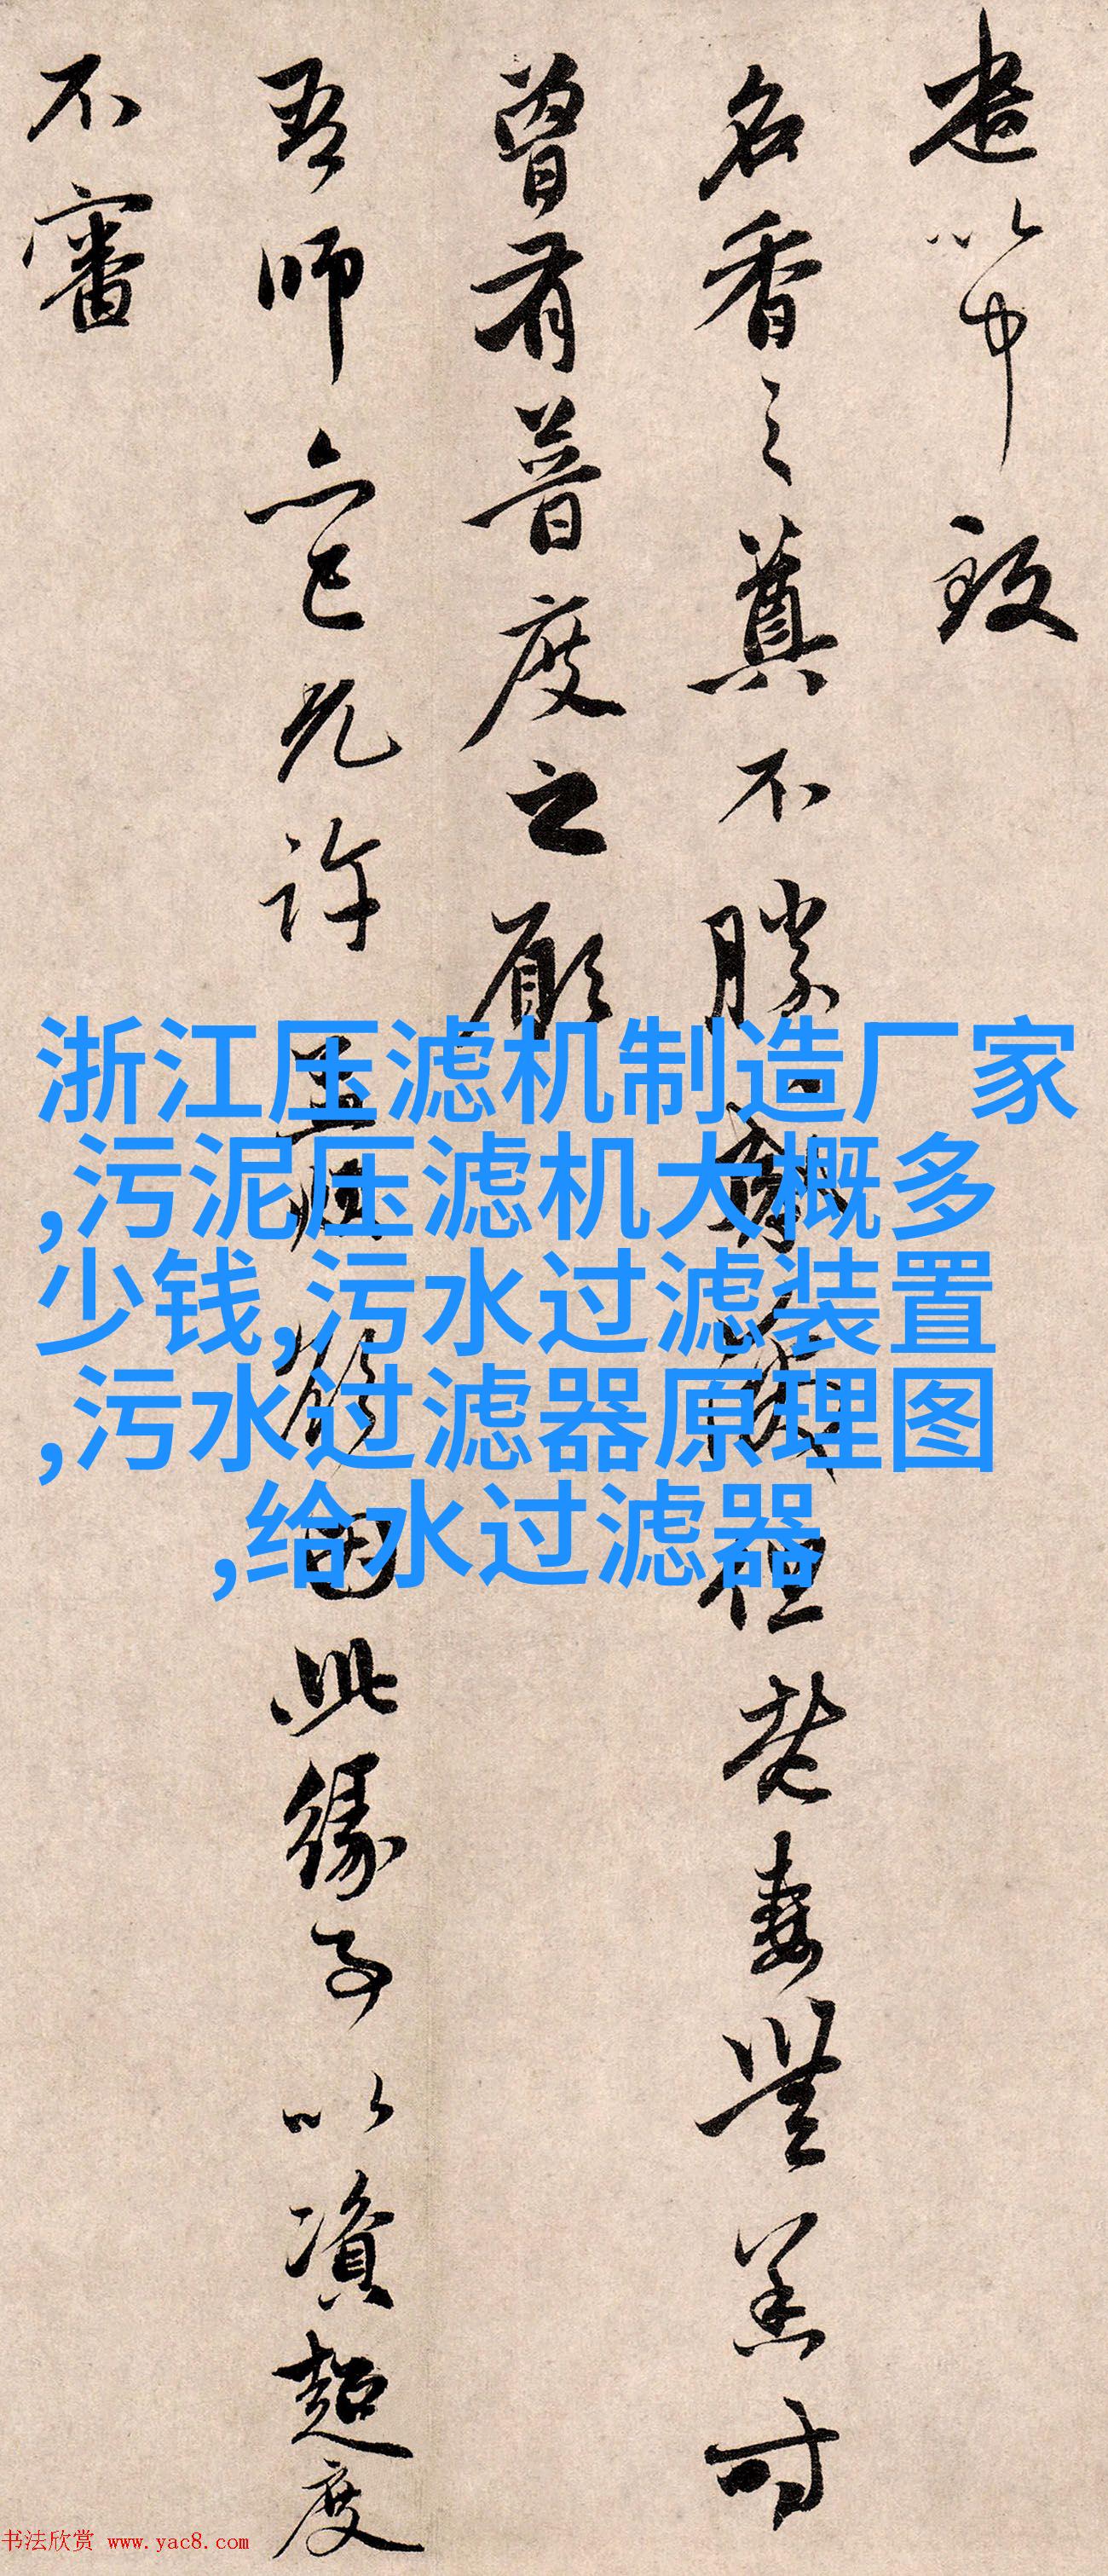 遣以中致
名香之奠不勝感但老妻無恙時
曾有普度之願
吾師亦已允許因此緣事以資超度
不審
浙江压滤机制造厂家
,污泥压滤机大概多
少钱,污水过滤装置
,污水过滤器原理图
,给水过滤器
书法欣赏 www.yac8.com